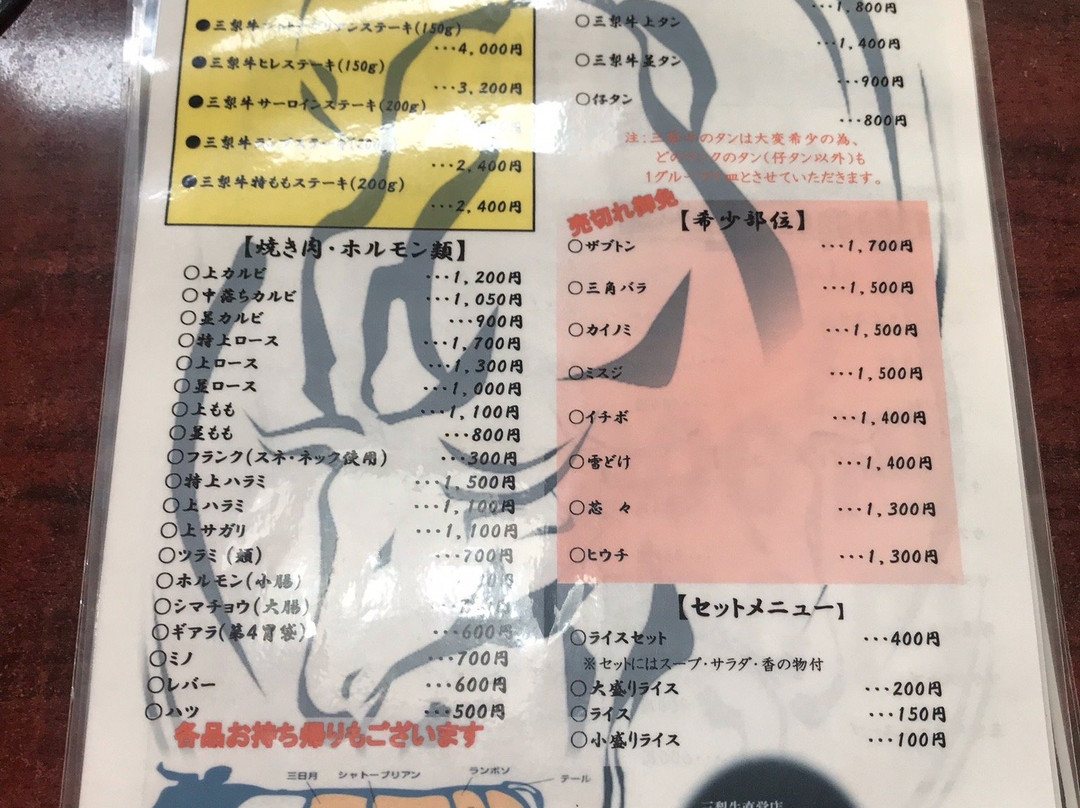 ●三梨牛シャトーブリアンステーキ(150g)
···4,000円
●三梨牛ヒレステーキ(150g)
···3,200円
●三梨牛サーロインステーキ(200g)
●三梨牛ランプステーキ
···2,400円
●三梨牛特ももステーキ(200g)
···2,400円
【焼き肉・ホルモン類】
○上カルビ ···1,200円
○中落ちカルビ ···1,050円
○並カルビ ···900円
○特上ロース ···1,700円
○上ロース ···1,300円
○並ロース ···1,000円
○上もも ···1,100円
○並もも ···800円
○フランク(スネ・ネック使用) ···300円
○特上ハラミ ···1,500円
○上ハラミ ···1,100円
○上サガリ ···1,100円
○ツラミ(頬) ···700円
○ホルモン(小腸) 円
○シマチョウ(大腸) 円
○ギアラ(第4胃袋) ···600円
○ミノ ···700円
○レバー ···600円
○ハツ ···500円
各品お持ち帰りもございます
三日月 シャトーブリアン ランボソ テール
···1,800円
○三梨牛上タン
···1,400円
○三梨牛並タン
···900円
○仔タン
···800円
注:三梨牛のタンは大変希少の為、
どのランクのタン(仔タン以外)も
1グループ 皿とさせていただきます。
売切れ御免
【希少部位】
○ザブトン ···1,700円
○三角バラ ···1,500円
○カイノミ ···1,500円
○ミスジ ···1,500円
○イチボ ···1,400円
○雪どけ ···1,400円
○芯々 ···1,300円
○ヒウチ ···1,300円
【セットメニュー】
○ライスセット ···400円
※セットにはスープ・サラダ・香の物付
○大盛りライス ···200円
○ライス ···150円
○小盛りライス ···100円
三梨牛直営店